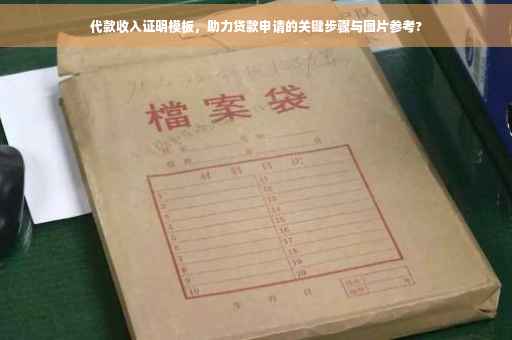 代款收入证明模板，助力贷款申请的关键步骤与图片参考？
檔案袋
材料目次
1 11
2 12
3 13
4 14
5 15
6 16
7 17
8 18
9 19
10 20
年 月 日